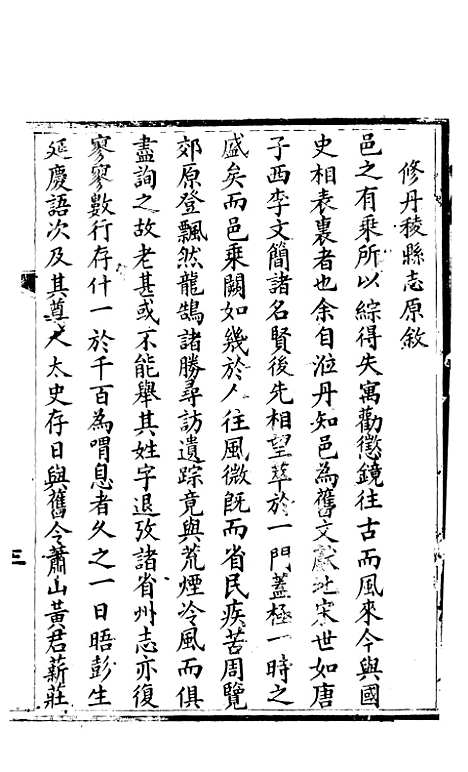 修丹稜縣志原敘
邑之有乘所以綜得失寓勸懲鏡往古而風來今與國
史相表裏者也余自涖丹知邑為舊文獻地宋世如唐
子西李文簡諸名賢後先相望萃於一門蓋極一時之
盛矣而邑乘闕如幾於人往風微既而省民疾苦周覽
郊原登飄然龍鵠諸勝尋訪遺踪竟與荒煙冷風而俱
盡詢之故老甚或不能舉其姓字退攷諸省州志亦復
寥寥數行存什一於千百為喟息者久之一日晤彭生
延慶語次及其尊人太史存日與舊令蕭山黃君薪莊
三